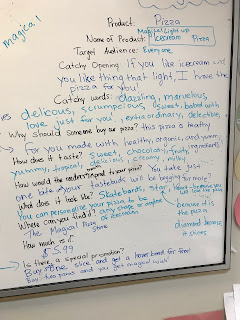 magical
Product: Pizza
Magical Light up
Name of Product: Icecream Pizza
Target Audience: Everyone
Catchy Opening: If you like icecream and
you like things that light, I have the
pizza for you!
Catchy words: dazzling, marvelous,
delicous, scrumpcious, sweet, baked with
love, just for you, extraordinary, delective,
Why should someone buy our pizza? this pizza is healthy
for you made with healthy, organic, and yummy
ingredients
How does it taste? sweet, chocolaty, fruity,
yummy, tropical, delicious, creamy, milky
How would the reader respond to your pizza? You take just
one bite and your tastebuds will be begging for more!
What does it look like? Skateboards, star,
You can personalize your pizza to be
any shape or
of icecream
because it is
the pizza
Where can you find it?
The Magical Pizza Store
diamond because
it shines
How much is it?
$5.99
Is there a special promotion?
Buy one slice and get a hover board for free!
Buy two pizzas and you get magical